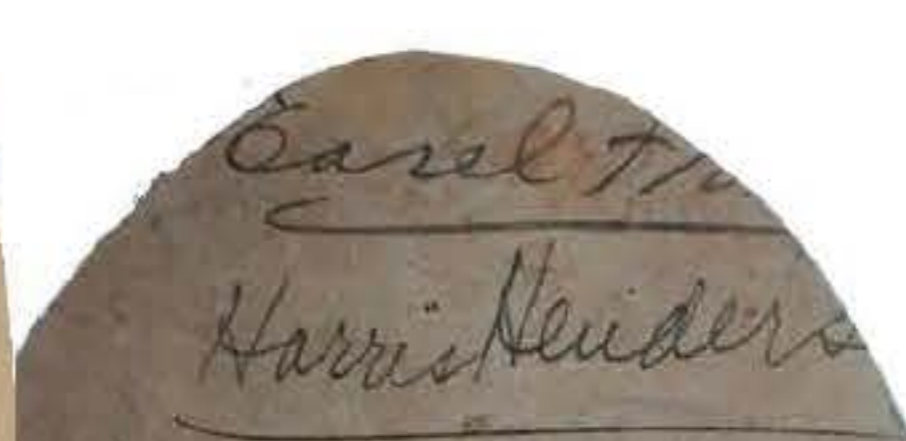 Earl
Harris Henders